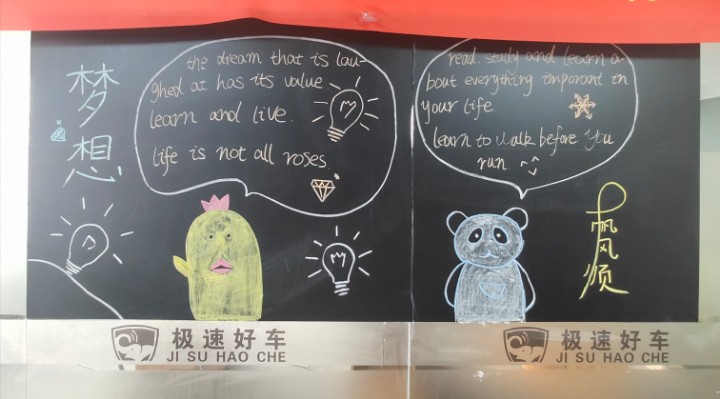 梦想
the dream that is lau-
ghed at has its value
learn and live.
life is not all roses
read. study and learn a-
bout everything important in
your life
learn to walk before you
run.
一帆风顺
极速好车
JI SU HAO CHE
极速好车
JI SU HAO CHE